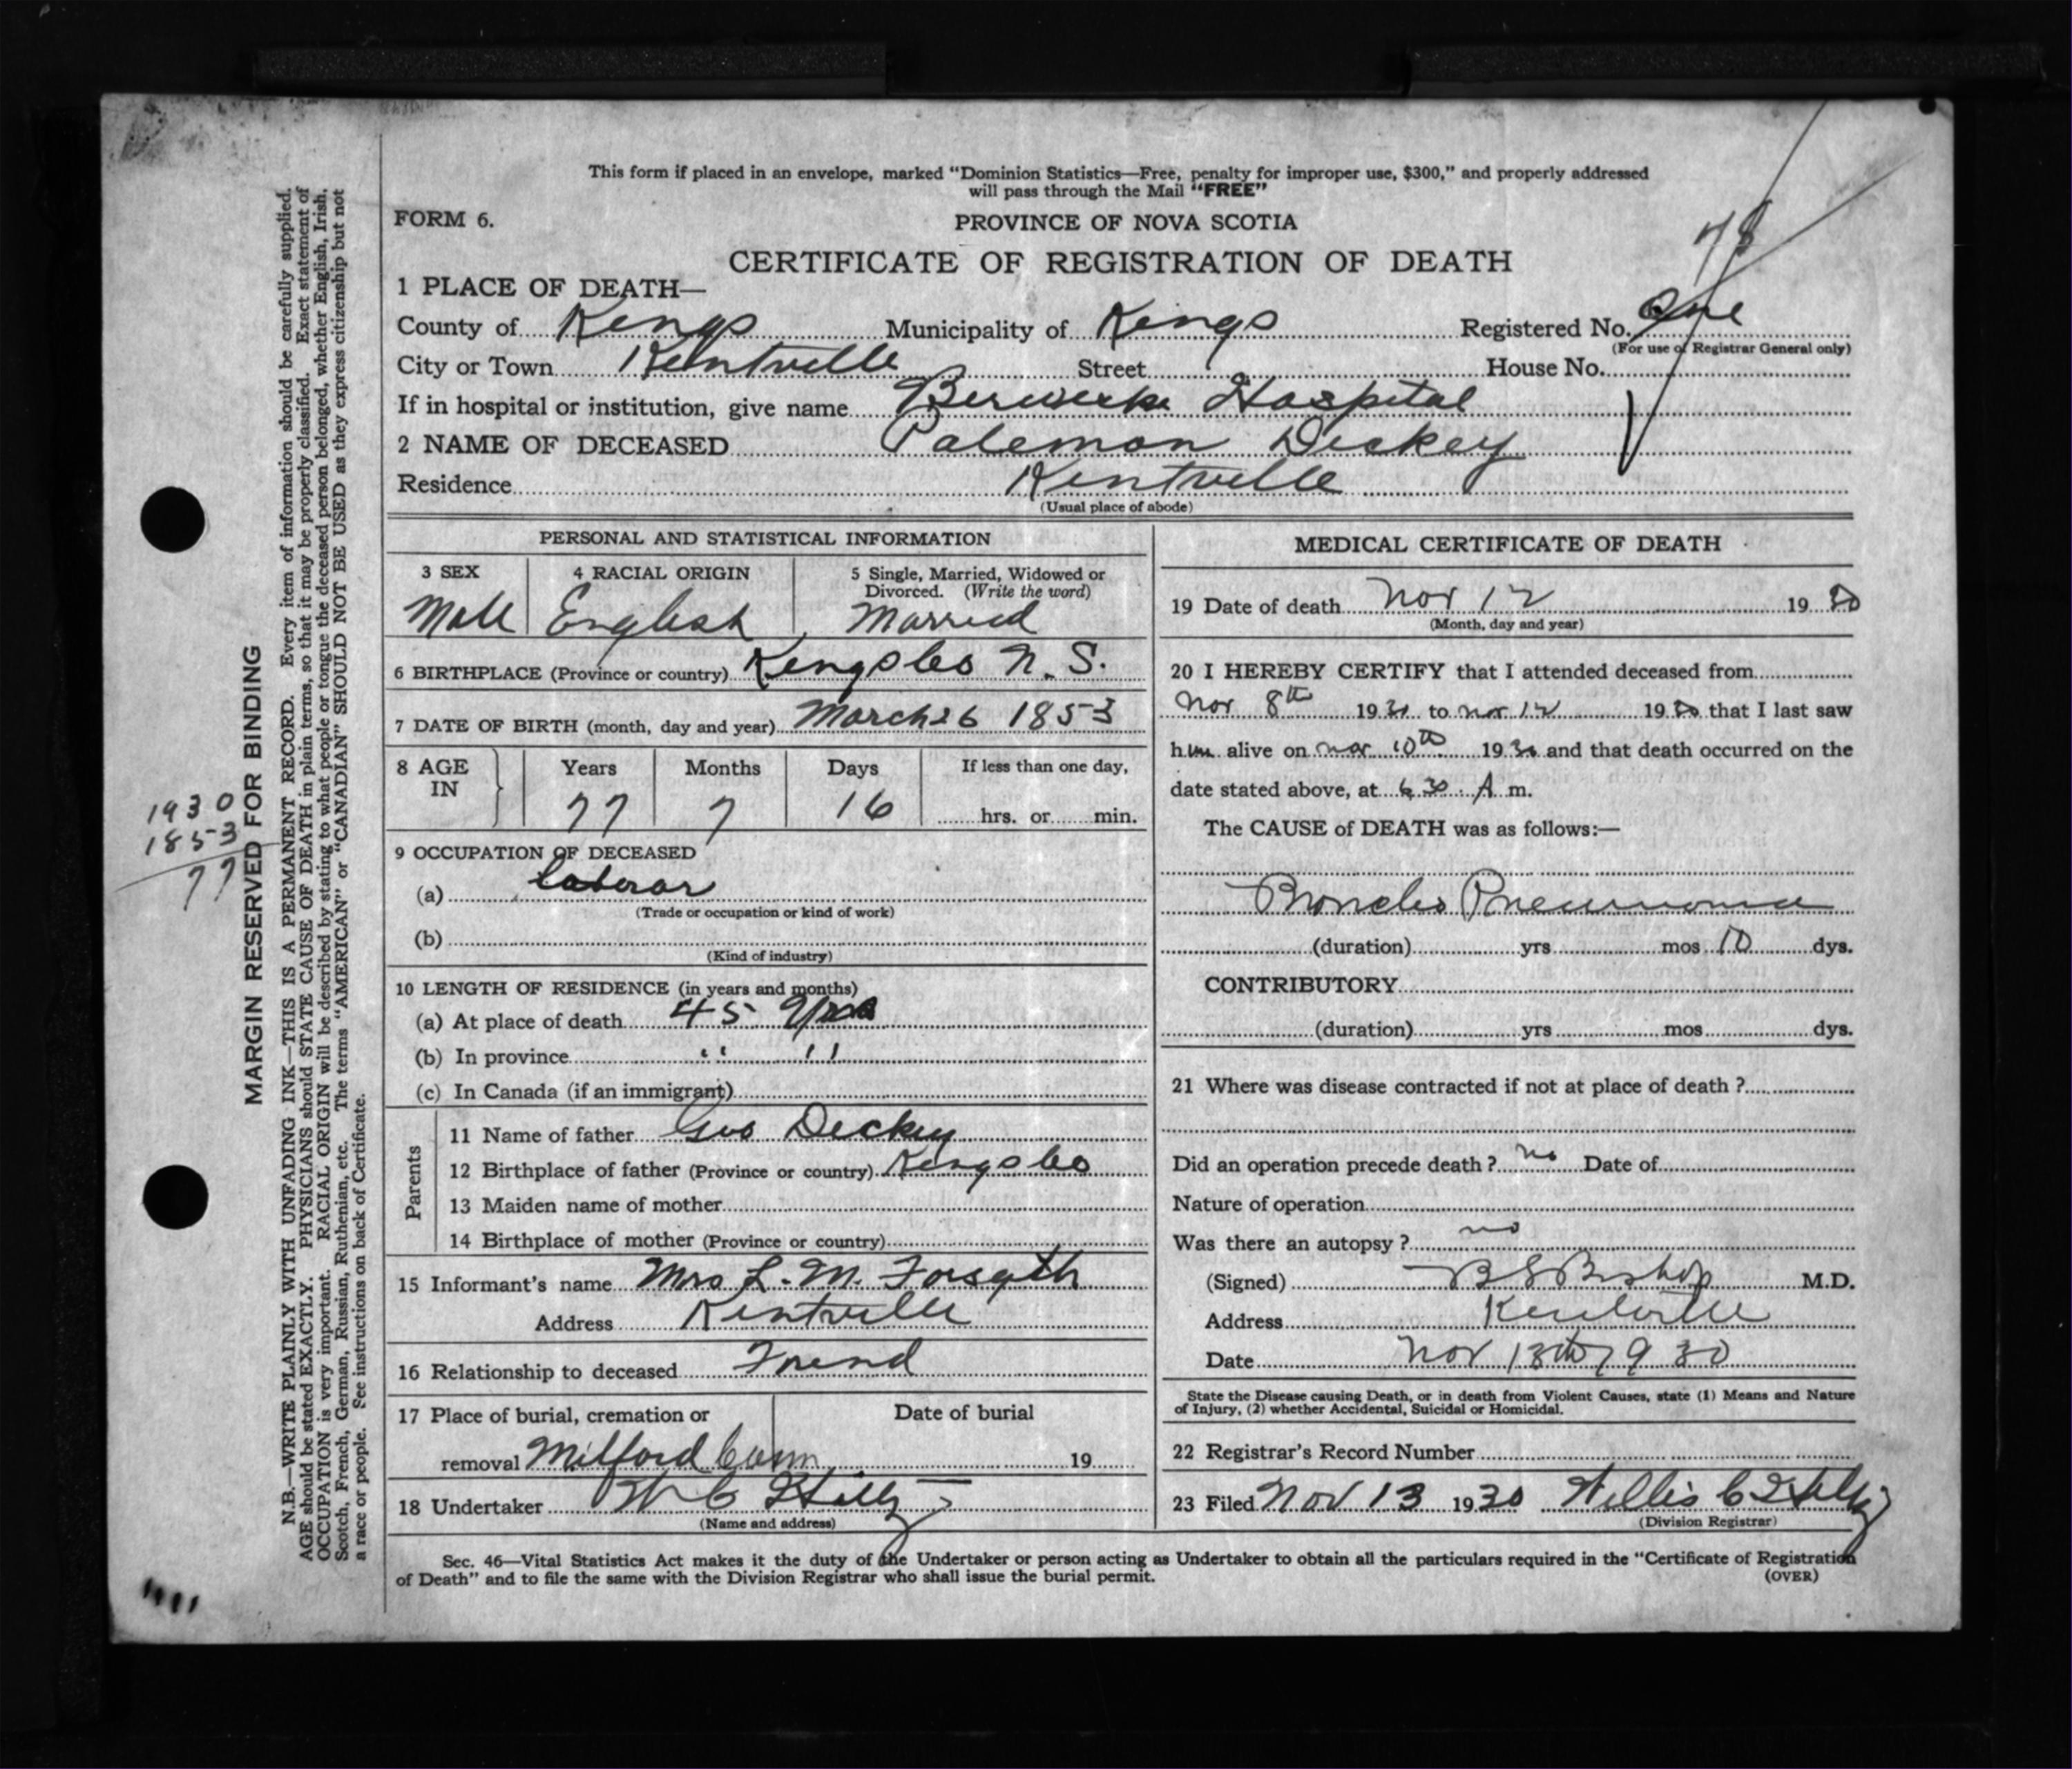 This form if placed in an envelope, marked "Dominion Statistics—Free, penalty for improper use, $300," and properly addressed
will pass through the Mail "FREE"
FORM 6.
PROVINCE OF NOVA SCOTIA
CERTIFICATE OF REGISTRATION OF DEATH
1 PLACE OF DEATH—
County of Kings Municipality of Kings Registered No.
(For use of Registrar General only)
City or Town Kentville Street House No.
If in hospital or institution, give name Berwick Hospital
2 NAME OF DECEASED Palemon Dickey
Residence Kentville
(Usual place of abode)
PERSONAL AND STATISTICAL INFORMATION
3 SEX
Male
4 RACIAL ORIGIN
English
5 Single, Married, Widowed or
Divorced. (Write the word)
Married
6 BIRTHPLACE (Province or country) Kings Co N.S.
7 DATE OF BIRTH (month, day and year) March 26 1853
8 AGE
IN
Years Months Days If less than one day,
77 7 16 hrs. or min.
9 OCCUPATION OF DECEASED
(a) laboror
(Trade or occupation or kind of work)
(b)
(Kind of industry)
10 LENGTH OF RESIDENCE (in years and months)
(a) At place of death 45 Yrs
(b) In province " "
(c) In Canada (if an immigrant)
Parents
11 Name of father Geo Dickey
12 Birthplace of father (Province or country) Kings Co
13 Maiden name of mother
14 Birthplace of mother (Province or country)
15 Informant's name Mrs L. M. Forsyth
Address Kentville
16 Relationship to deceased Friend
17 Place of burial, cremation or Date of burial
removal Milford 19
18 Undertaker W C
(Name and address)
MEDICAL CERTIFICATE OF DEATH
19 Date of death Nov 12 1930
(Month, day and year)
20 I HEREBY CERTIFY that I attended deceased from
Nov 8th 1930 to Nov 12 1930 that I last saw
him alive on Nov 10th 1930 and that death occurred on the
date stated above, at 6 30 A m.
The CAUSE of DEATH was as follows:—
Broncho Pneumonia
(duration) yrs mos 10 dys.
CONTRIBUTORY
(duration) yrs mos dys.
21 Where was disease contracted if not at place of death ?
Did an operation precede death ? no Date of
Nature of operation
Was there an autopsy ? no
(Signed) B S Bishop M.D.
Address Kentville
Date Nov 13th 1930
State the Disease causing Death, or in death from Violent Causes, state (1) Means and Nature
of Injury, (2) whether Accidental, Suicidal or Homicidal.
22 Registrar's Record Number
23 Filed Nov 13 1930 Willis C
(Division Registrar)
Sec. 46—Vital Statistics Act makes it the duty of the Undertaker or person acting as Undertaker to obtain all the particulars required in the "Certificate of Registration
of Death" and to file the same with the Division Registrar who shall issue the burial permit. (OVER)
MARGIN RESERVED FOR BINDING
N.B.—WRITE PLAINLY WITH UNFADING INK—THIS IS A PERMANENT RECORD. Every item of information should be carefully supplied.
AGE should be stated EXACTLY. PHYSICIANS should STATE CAUSE OF DEATH in plain terms, so that it may be properly classified. Exact statement of
OCCUPATION is very important. RACIAL ORIGIN will be described by stating to what people or tongue the deceased person belonged, whether English, Irish,
Scotch, French, German, Russian, Ruthenian, etc. The terms "AMERICAN" or "CANADIAN" SHOULD NOT BE USED as they express citizenship but not
a race or people. See instructions on back of Certificate.
1930
1853
77